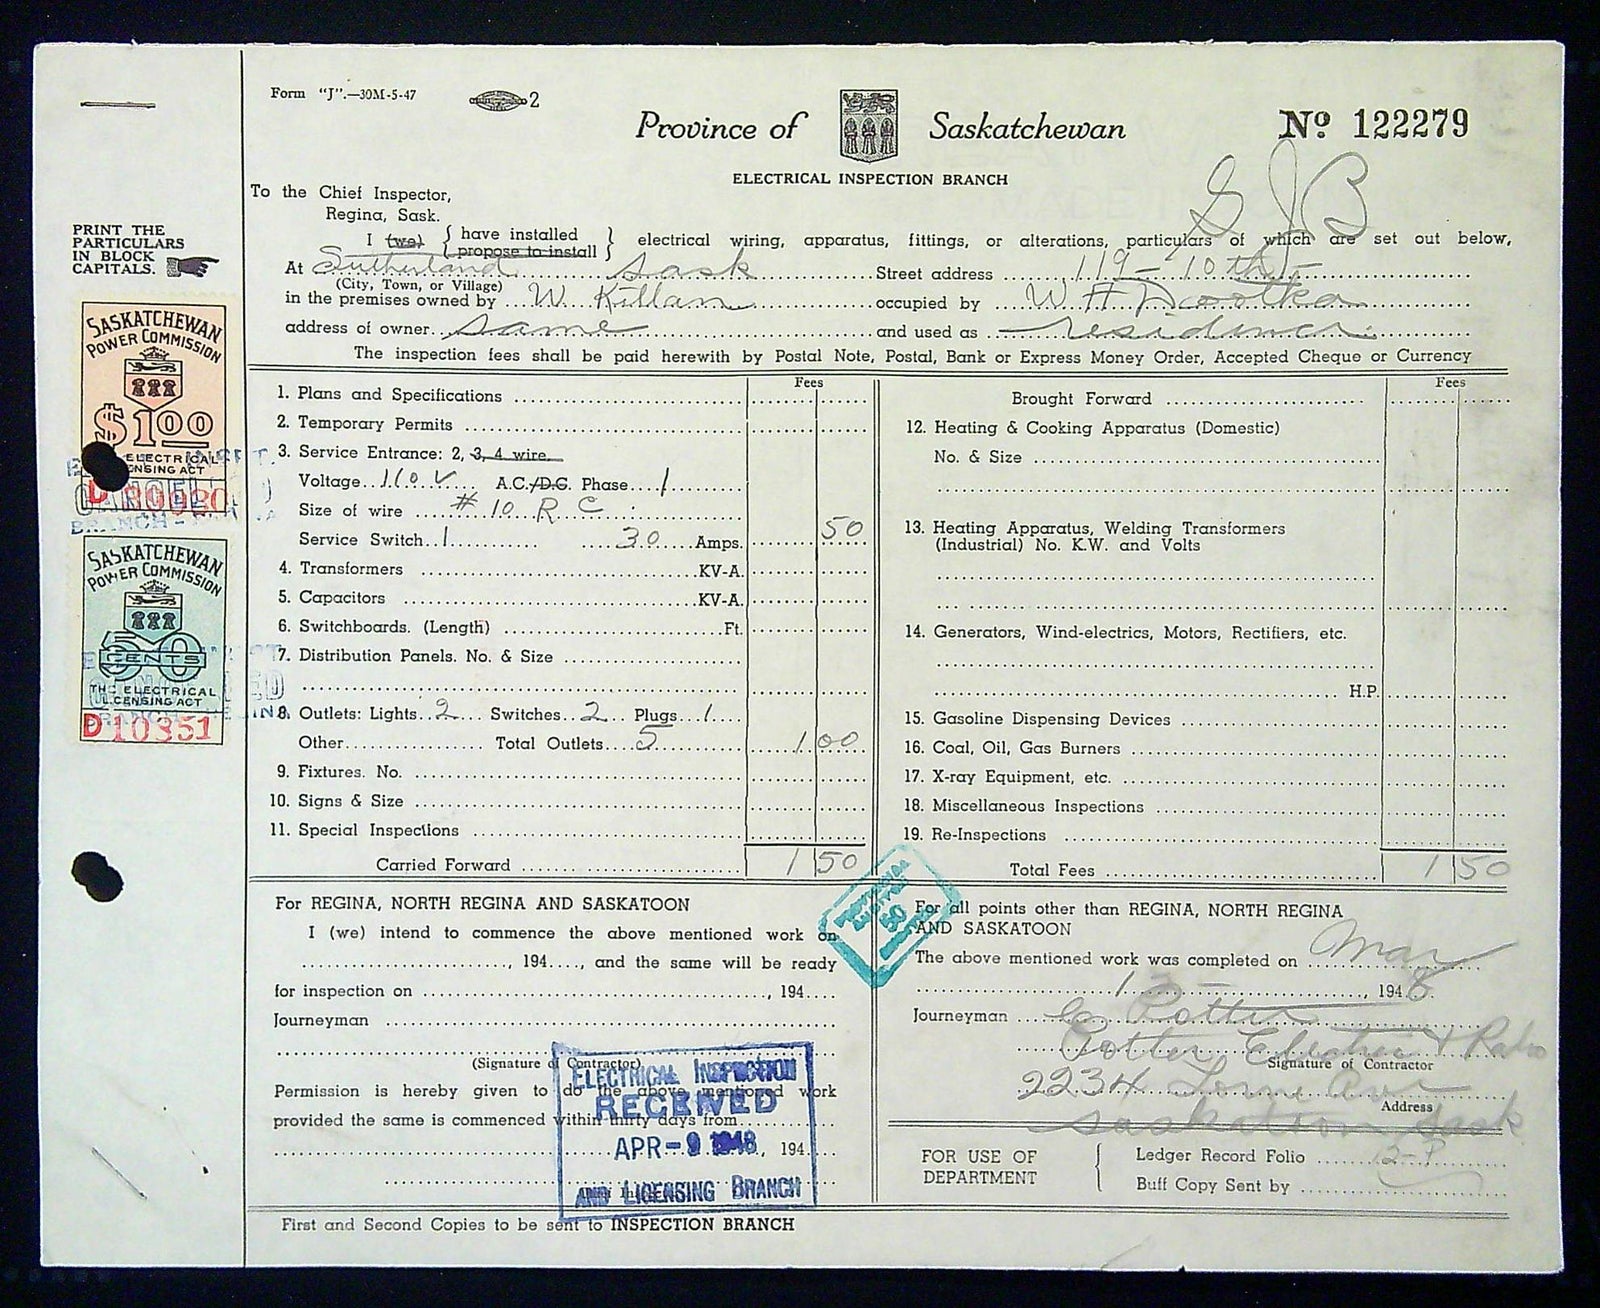 Form "J".—30M-5-47
2
Province of Saskatchewan
No 122279
ELECTRICAL INSPECTION BRANCH
SJB
To the Chief Inspector,
Regina, Sask.
PRINT THE
PARTICULARS
IN BLOCK
CAPITALS.
I (we) { have installed propose to install } electrical wiring, apparatus, fittings, or alterations, particulars of which are set out below,
At Sutherland Sask Street address 119 - 10th
(City, Town, or Village)
in the premises owned by W. Killam occupied by W H
address of owner same and used as residence
The inspection fees shall be paid herewith by Postal Note, Postal, Bank or Express Money Order, Accepted Cheque or Currency
SASKATCHEWAN
POWER COMMISSION
$1.00
ELECTRICAL
ENSING ACT
SASKATCHEWAN
POWER COMMISSION
50
CENTS
THE ELECTRICAL
LICENSING ACT
D10351
Fees
1. Plans and Specifications
2. Temporary Permits
3. Service Entrance: 2, 3, 4 wire
Voltage 110 V A.C./D.C. Phase 1
Size of wire # 10 R C
Service Switch 1 30 Amps. 50
4. Transformers KV-A.
5. Capacitors KV-A.
6. Switchboards. (Length) Ft.
7. Distribution Panels. No. & Size
8. Outlets: Lights 2 Switches 2 Plugs 1
Other Total Outlets 5 1 00
9. Fixtures. No.
10. Signs & Size
11. Special Inspections
Carried Forward 1 50
Fees
Brought Forward
12. Heating & Cooking Apparatus (Domestic)
No. & Size
13. Heating Apparatus, Welding Transformers
(Industrial) No. K.W. and Volts
14. Generators, Wind-electrics, Motors, Rectifiers, etc.
H.P.
15. Gasoline Dispensing Devices
16. Coal, Oil, Gas Burners
17. X-ray Equipment, etc.
18. Miscellaneous Inspections
19. Re-Inspections
Total Fees 1 50
50
For REGINA, NORTH REGINA AND SASKATOON
I (we) intend to commence the above mentioned work on
, 194...., and the same will be ready
for inspection on , 194....
Journeyman
(Signature of Contractor)
Permission is hereby given to do the above mentioned work
provided the same is commenced within thirty days from
, 194
ELECTRICAL INSPECTION
RECEIVED
APR - 9 1948
AND LICENSING BRANCH
First and Second Copies to be sent to INSPECTION BRANCH
For all points other than REGINA, NORTH REGINA
AND SASKATOON
The above mentioned work was completed on Mar
13 - , 1948.
Journeyman Potter
Potter Electric & Radio
Signature of Contractor
2234 Lorne Ave
Address
Saskatoon Sask
FOR USE OF
DEPARTMENT
Ledger Record Folio 12-P
Buff Copy Sent by